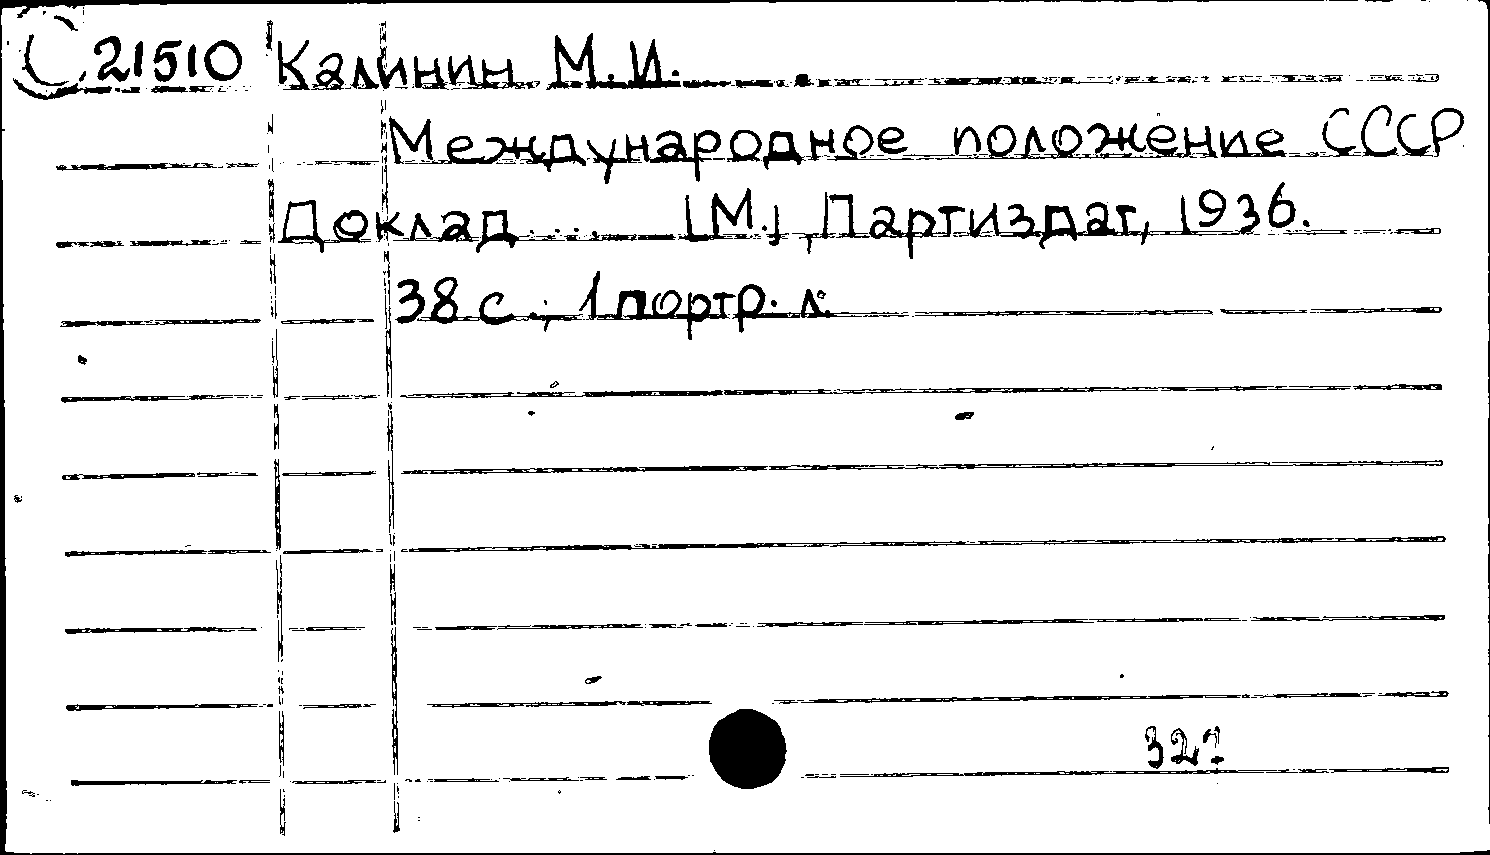 21510 Калинин М. И.
Международное положение СССР
Доклад ... [М.], Партиздат, 1936.
38 с.; 1 портр. л.